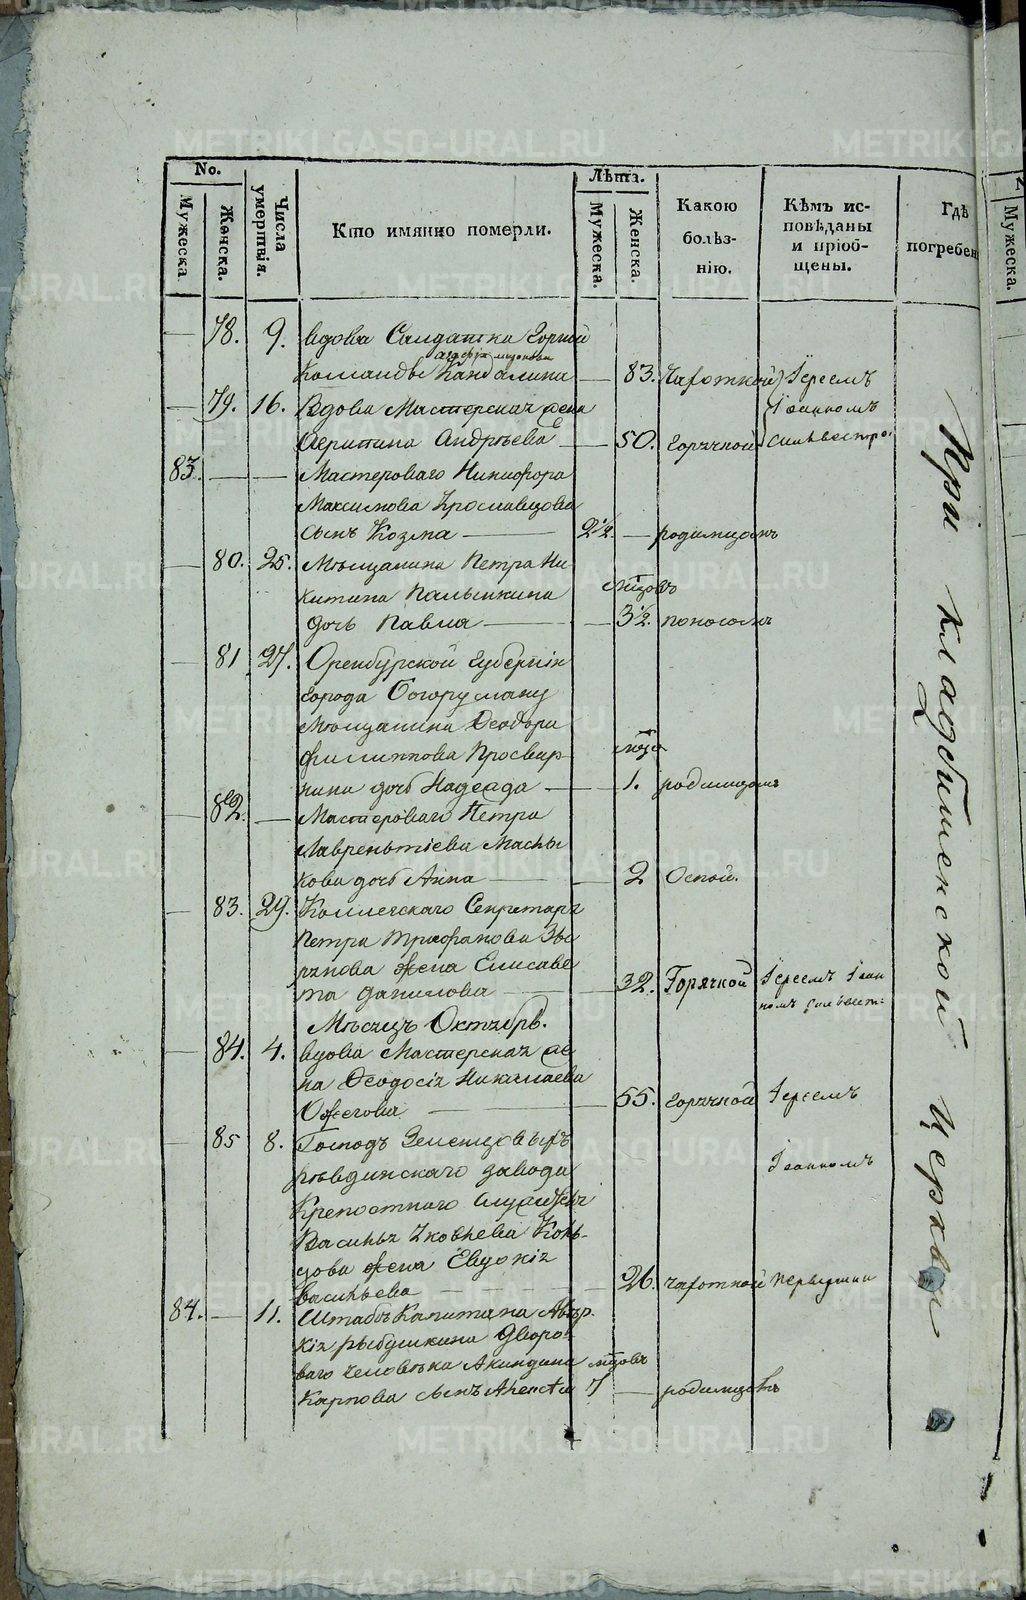 No.
Мужеска
Женска.
Числа умертвія.
Кто имянно померли.
Лѣта.
Мужеска.
Женска.
Какою болѣз-нію.
Кѣмъ ис-повѣданы и пріоб-щены.
Гдѣ погребен
Мужеска.
— 78. 9. вдова Салдатка Горной
Команды Кандалина — 83. Чахоткой Іереемъ
— 79. 16. Вдова Мастерская жена Іоанномъ
Агрипина Андрѣева — 50. горячкой Силвестро.
83. — — Мастероваго Никифора
Максимова Ярославцова
сынъ Козма — 2½. — родимцомъ
— 80. 25. Мѣщанина Петра Ни-
китина Палышкина мцовъ
дочь Павла — — 3½. поносомъ
— 81 27. Оренбурской губерніи
города Богоруслану
Мѣщанина Ѳеодора
Филиппова Просвир-
нина дочь Надежда — 1. родимцомъ
— 82. — Мастероваго Петра
Лаврентіева Маслы-
кова дочь Анна — — 2 Оспой.
— 83. 29. Коллежскаго Секретаря
Петра Трифанова Зы-
рянова жена Елисаве-
та Данилова — 32. Горячкой Іереемъ Іоан-
номъ Силвест:
Мѣсяцъ Октябрь.
— 84. 4. вдова Мастерская же-
на Ѳеодосія Николаева
Ожегова — 55. горячкой Іереемъ
— 85 8. Господъ Зеленцовыхъ
ревдинскаго завода Іоанномъ
Крепостнаго служителя
Василья Яковлева Копь-
жова жена Евдокія
Васильева — 26. чахоткой Первушин
84. — 11. Штабъ Капитана Авер-
кія рыбушкина Дворо-
ваго человѣка Акиндина мцовъ
Карпова сынъ Алексѣй 7 — родимцомъ
При кладбищенской Церкви
METRIKI.GASO-URAL.RU